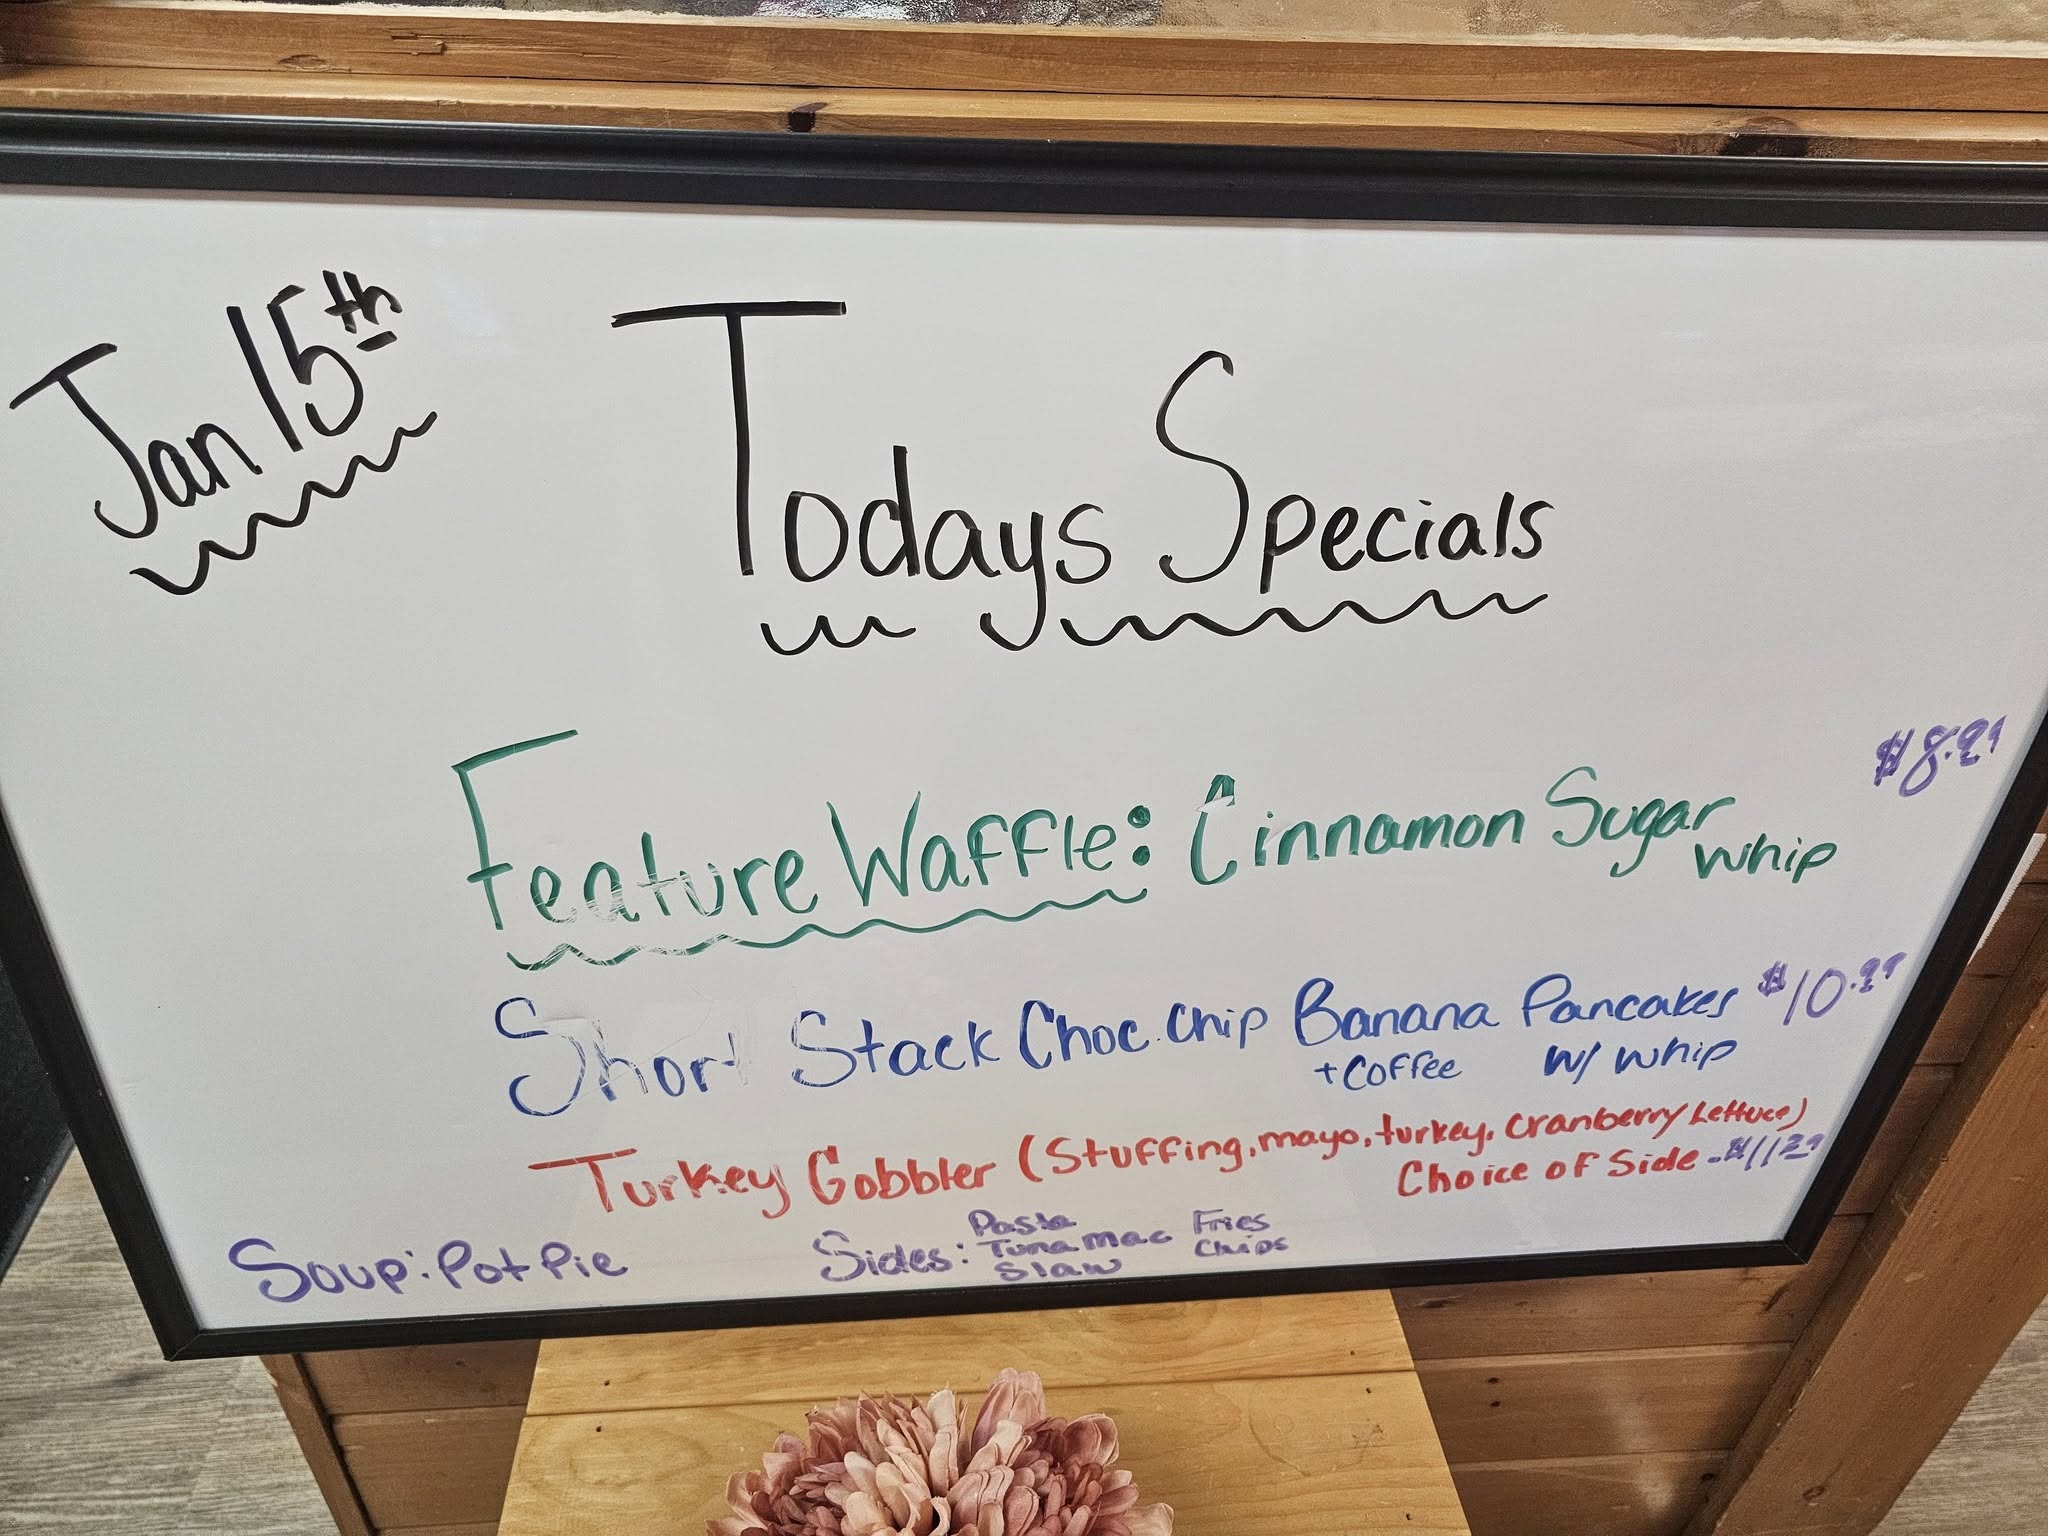 Jan 15th
Todays Specials
$8.99
Feature Waffle: Cinnamon Sugar
whip
Short Stack Choc. Chip Banana Pancakes $10.99
+Coffee w/ whip
Turkey Gobbler (Stuffing, mayo, turkey, cranberry Lettuce)
Choice of Side -
Soup: Pot Pie
Sides: Pasta
Tuna mac Fries
Slaw Chips